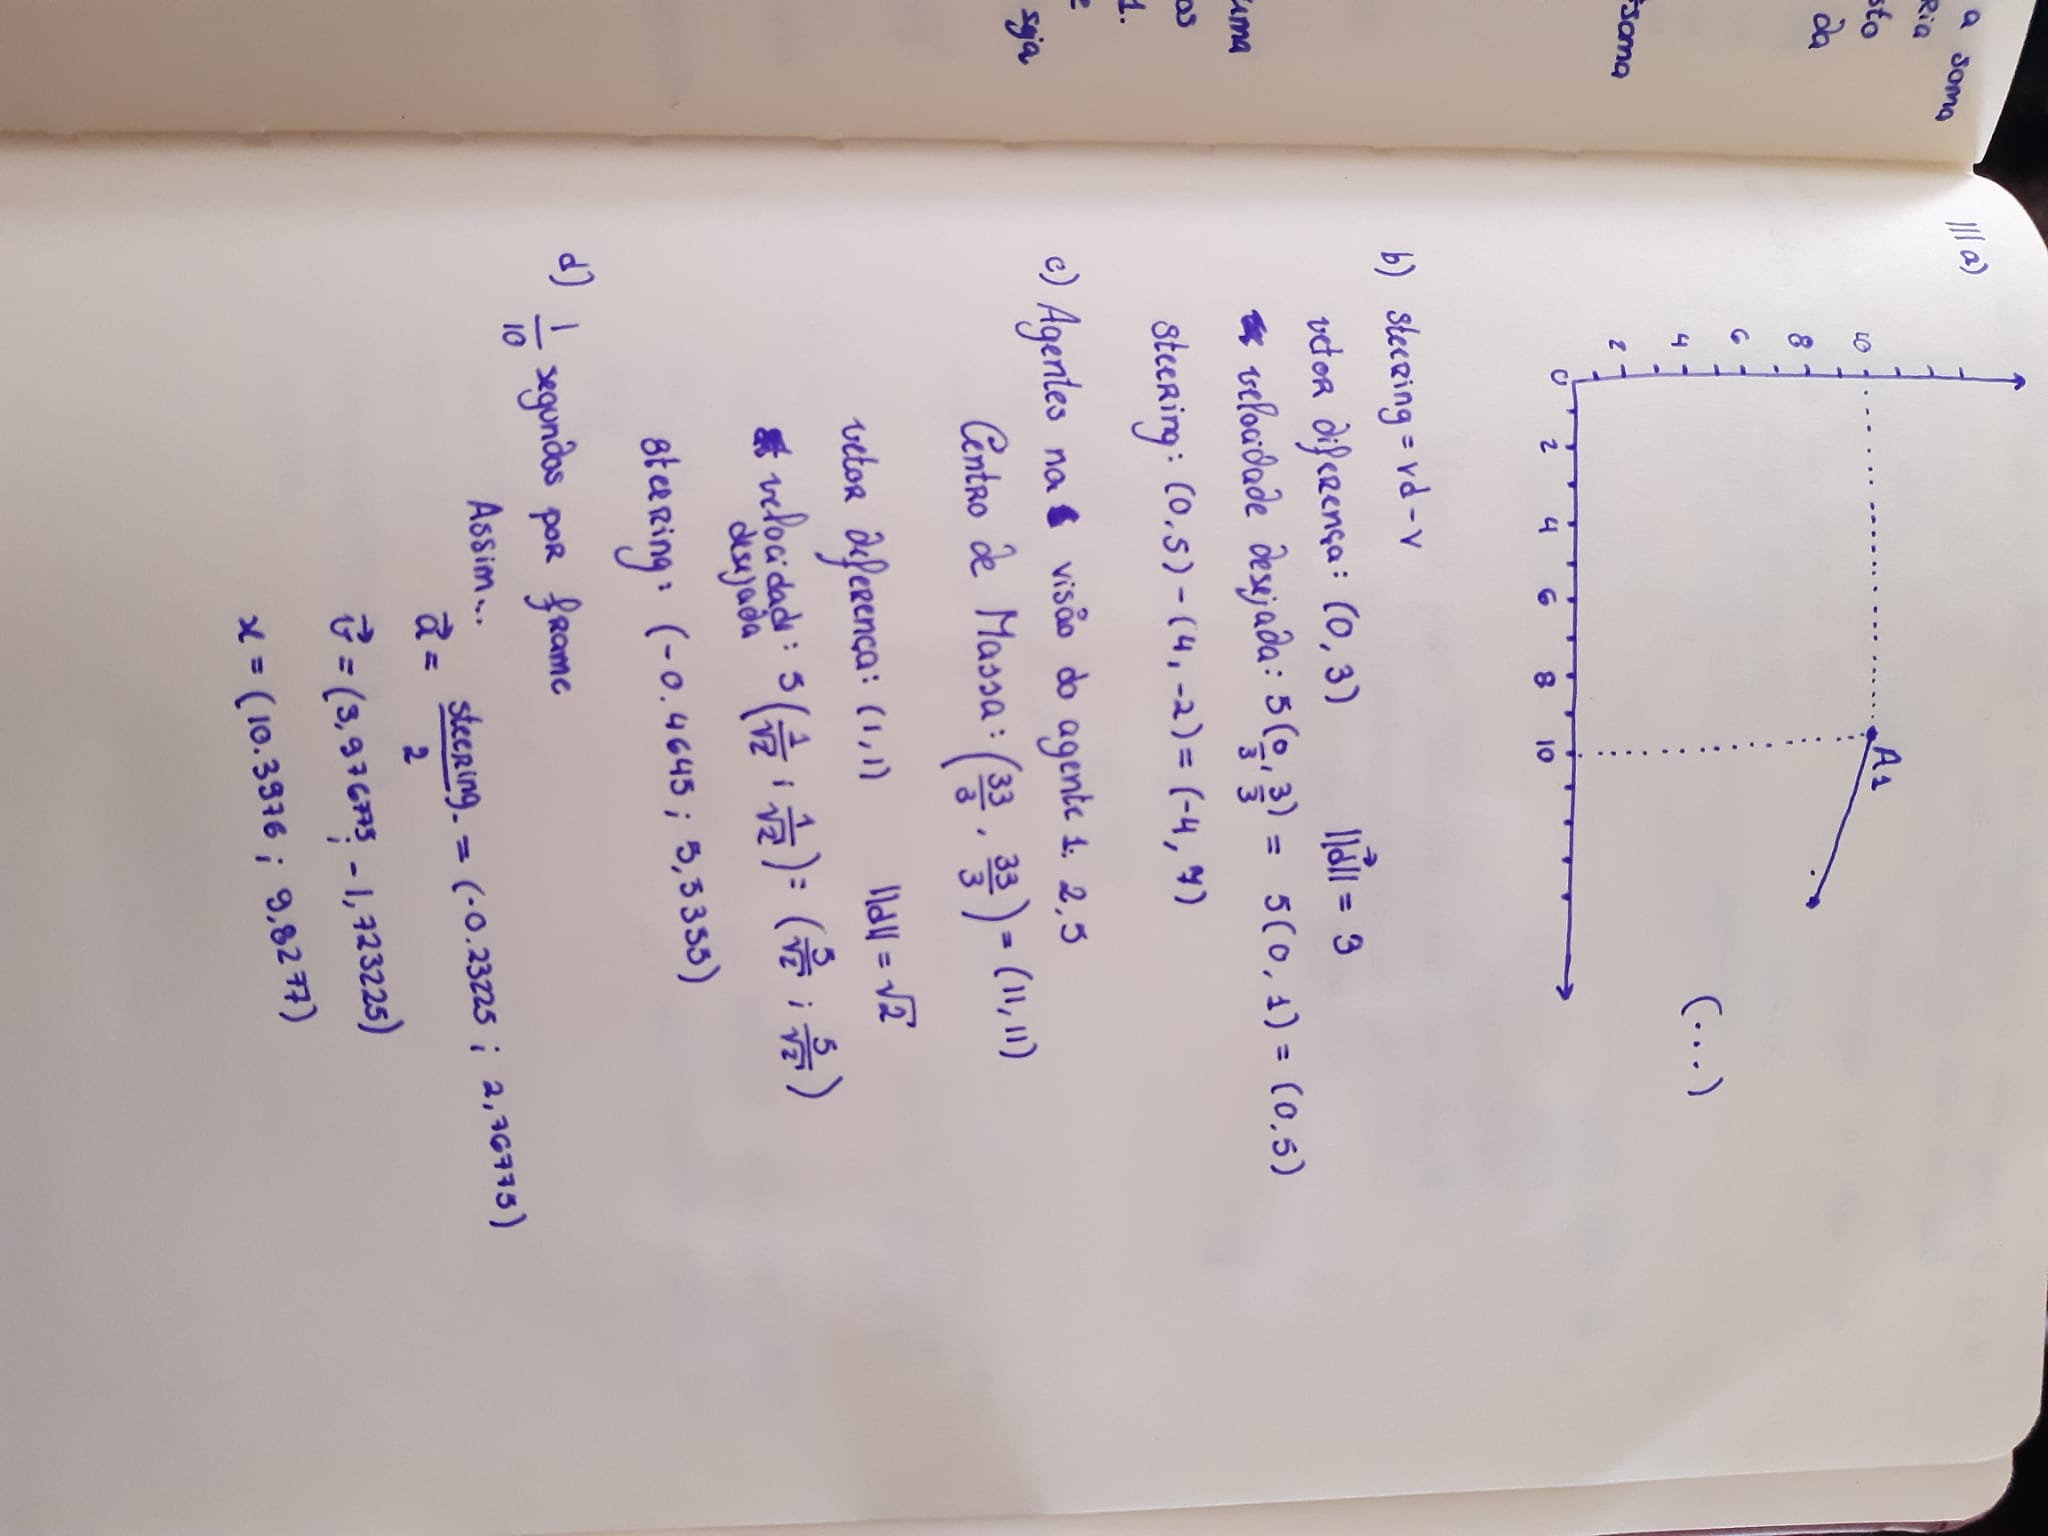 a soma
Ria
sto
da
soma
uma
os
1.
e
seja
III a)
A1
10
8
6
4
2
0 2 4 6 8 10
(...)
b) steering = vd - v
vetor diferença: (0, 3) ||d⃗|| = 3
velocidade desejada: 5(0/3, 3/3) = 5(0, 1) = (0,5)
steering: (0,5) - (4, -2) = (-4, 7)
c) Agentes na visão do agente 1: 2,5
Centro de Massa: (33/3, 33/3) = (11, 11)
vetor diferença: (1,1) ||d|| = √2
velocidade desejada: 5(1/√2 ; 1/√2) = (5/√2 ; 5/√2)
steering: (-0.4645 ; 5,5355)
d) 1/10 segundos por frame
Assim...
a⃗ = steering/2 = (-0.23225 ; 2,76775)
v⃗ = (3,976775 ; -1,723225)
x = (10.3976 ; 9,8277)